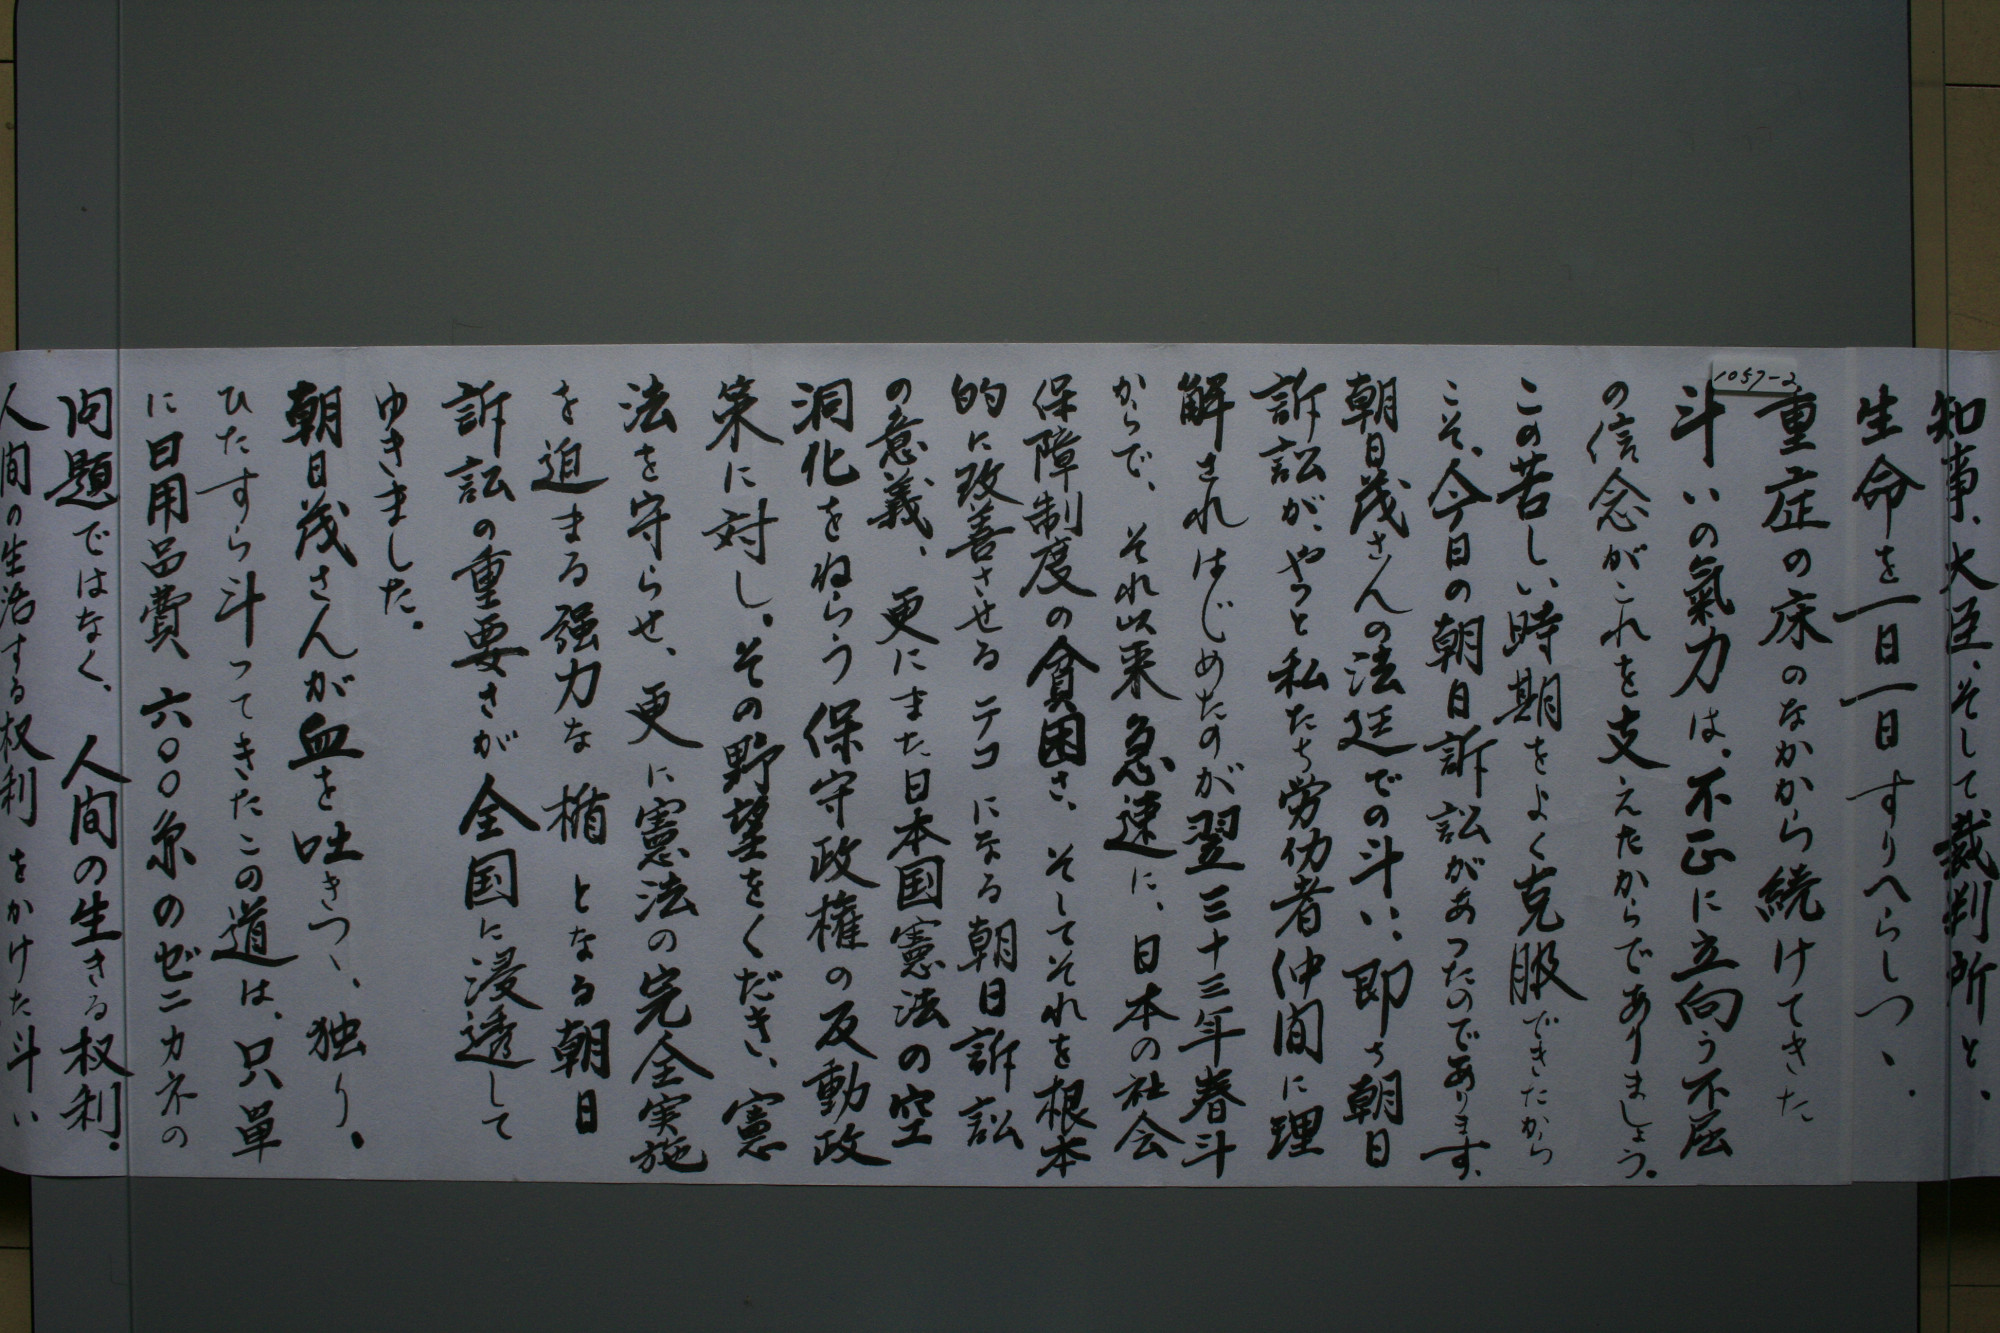 1057-2
知事、大臣、そして裁判所と、
生命を一日一日すりへらしつゝ、
重症の床のなかから続けてきた
斗いの氣力は、不正に立向う不屈
の信念がこれを支えたからでありましょう。
この苦しい時期をよく克服できたから
こそ、今日の朝日訴訟があったのであります、
朝日茂さんの法廷での斗い、即ち朝日
訴訟が、やっと私たち労仂者仲間に理
解されはじめたのが翌三十三年春斗
からで、それ以来急速に、日本の社会
保障制度の貧困さ、そしてそれを根本
的に改善させるテコになる朝日訴訟
の意義、更にまた日本国憲法の空
洞化をねらう保守政権の反動政
策に対し、その野望をくだき、憲
法を守らせ、更に憲法の完全実施
を迫まる强力な楯となる朝日
訴訟の重要さが全国に浸透して
ゆきました。
朝日茂さんが血を吐きつゝ、独り、
ひたすら斗ってきたこの道は、只單
に日用品費六〇〇円のゼニカネの
问題ではなく、人間の生きる权利、
人間の生活する权利をかけた斗い